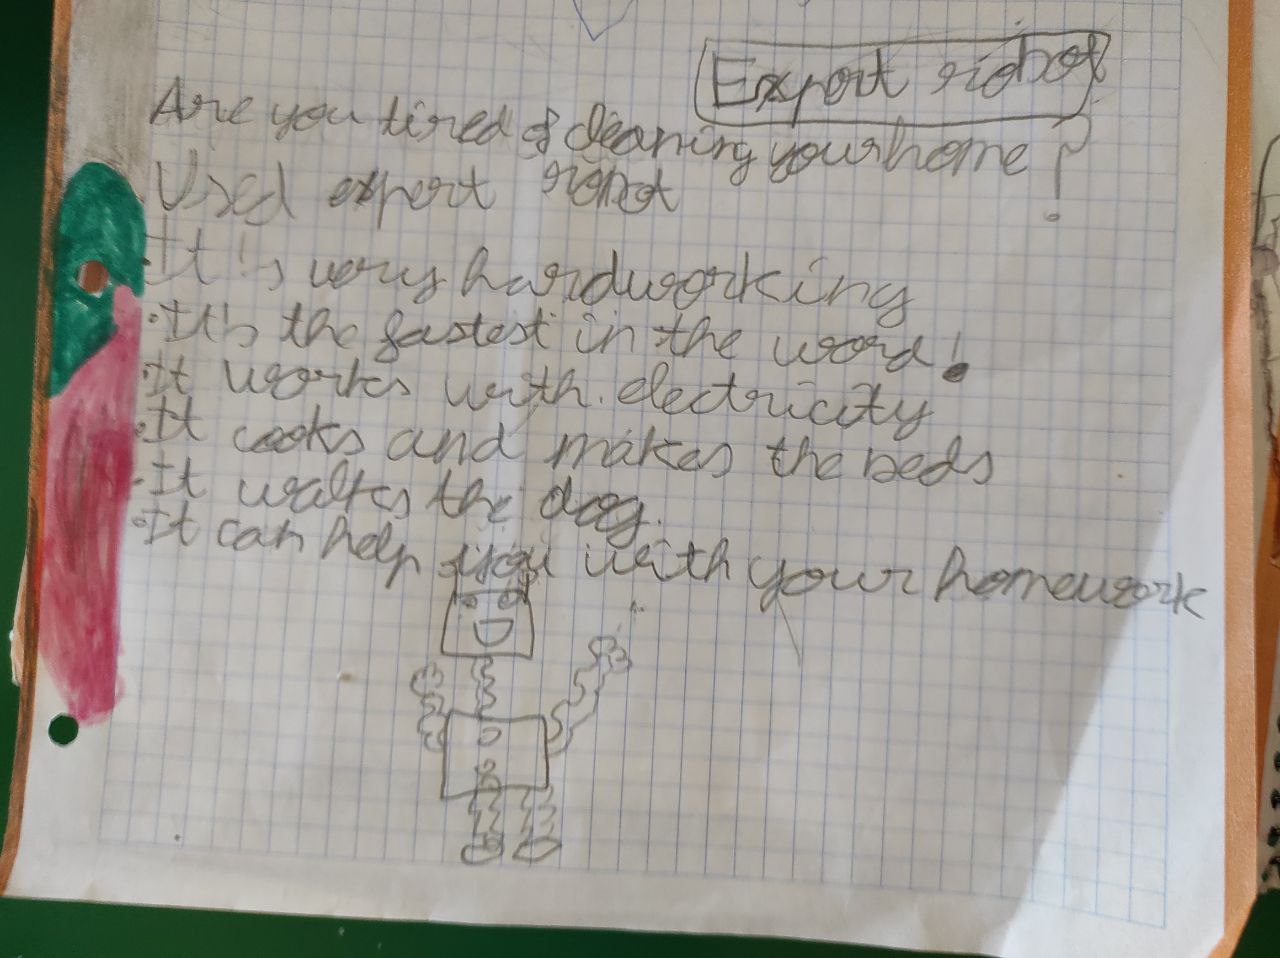 Expert robot
Are you tired of cleaning your home?
Used expert robot
·It's very hardworking
·It's the fastest in the word!
·It works with electricity
·It cooks and makes the beds
·It walks the dog.
·It can help you with your homework